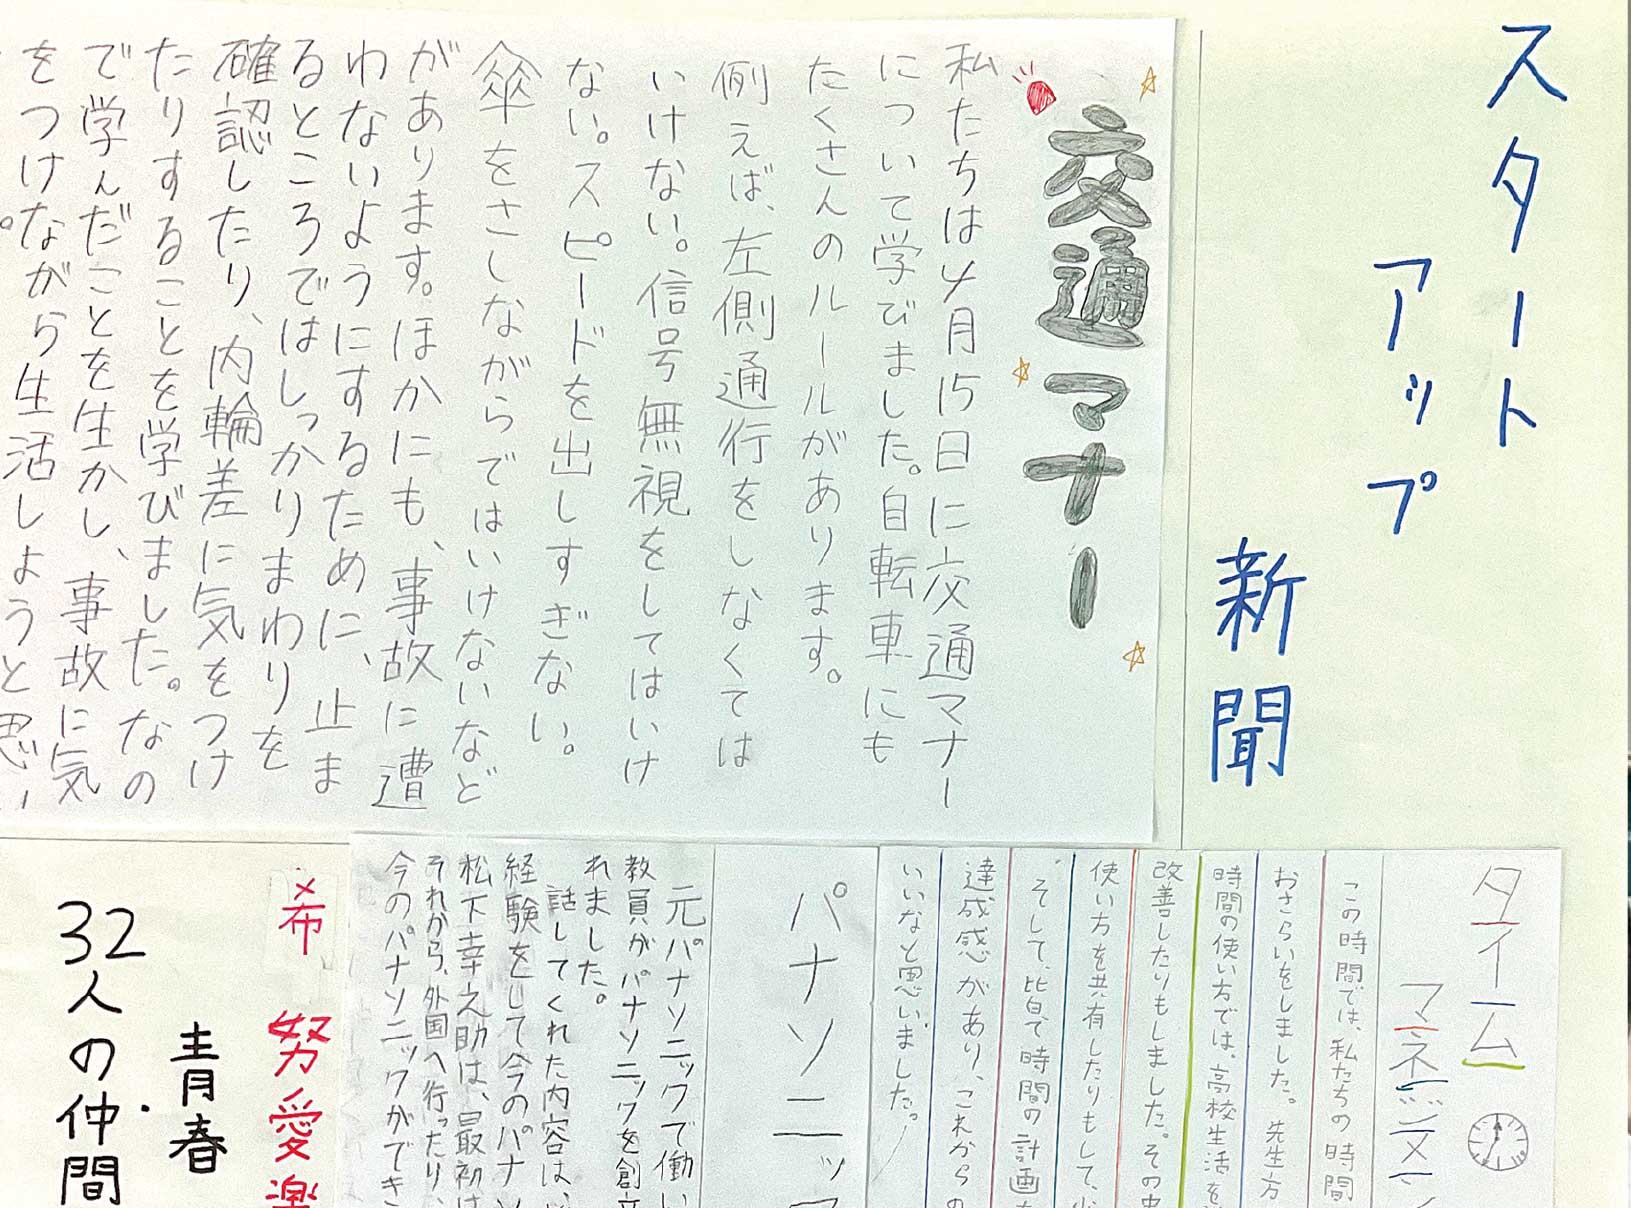 スタート
アップ
新聞
交通マナー
私たちは4月15日に交通マナー
について学びました。自転車にも
たくさんのルールがあります。
例えば、左側通行をしなくては
いけない。信号無視をしてはいけ
ない。スピードを出しすぎない。
傘をさしながらではいけないなど
があります。ほかにも、事故に遭
わないようにするために、止ま
るところではしっかりまわりを
確認したり、内輪差に気をつけ
たりすることを学びました。なの
で学んだことを生かし、事故に気
をつけながら生活しようと思い
タイム
マネジメン
この時間では、私たちの時間
おさらいをしました。先生方
時間の使い方では、高校生活を
改善したりもしました。その中
使い方を共有したりもして、
そして、皆で時間の計画
達成感があり、これからの
いいなと思いました。
パナソニッ
元パナソニックで働い
教員がパナソニックを創立
れました。
話してくれた内容は、
経験をして今のパナソ
松下幸之助は、最初は
それから、外国へ行ったり、
今のパナソニックができ
希 努愛楽
青春
32人の仲間